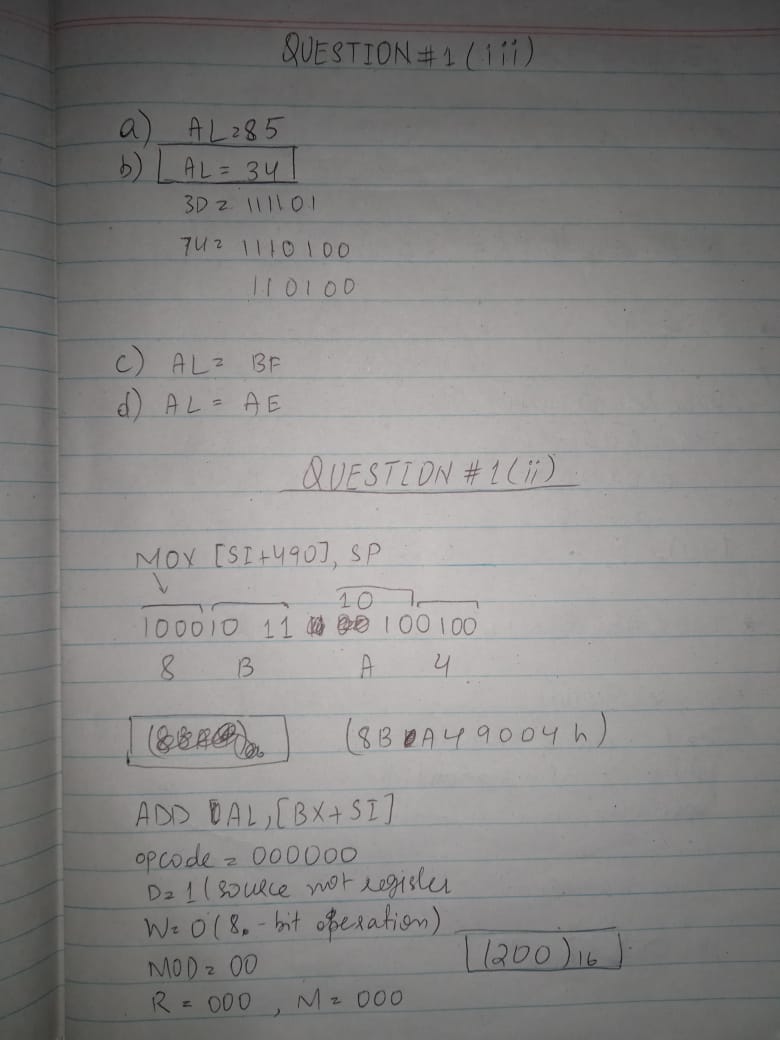 QUESTION #1 (iii)
a) AL = 85
b) AL = 34
3D = 111101
74 = 1110100
110100
c) AL = BF
d) AL = AE
QUESTION #1(ii)
MOV [SI+490], SP
10
100010 11 100100
8 B A 4
(8B A49004h)
ADD AL, [BX+SI]
opcode = 000000
D = 1 (source not register
W = 0 (8-bit operation)
MOD = 00
(200)16
R = 000 , M = 000